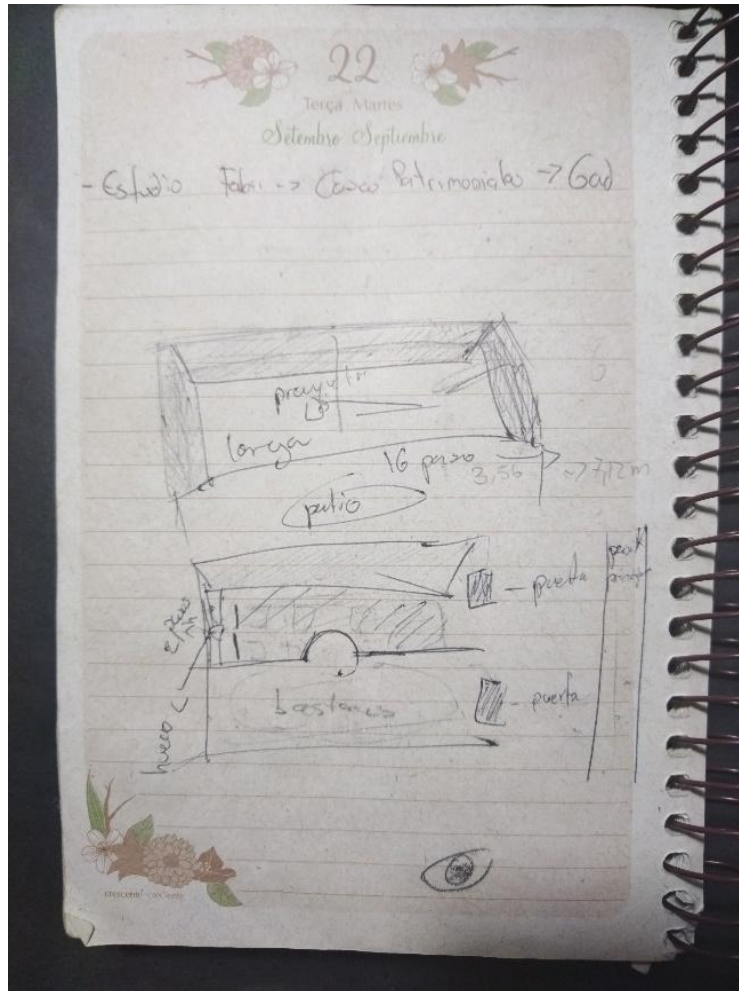 22
Terça Martes
Setembro Septiembre
- Estudio Fabri -> Casas Patrimoniales -> Gad
proyector
larga
16 pasos
3,56 -> 7,12 m
patio
puerta
hueco
puerta
crescente creciente